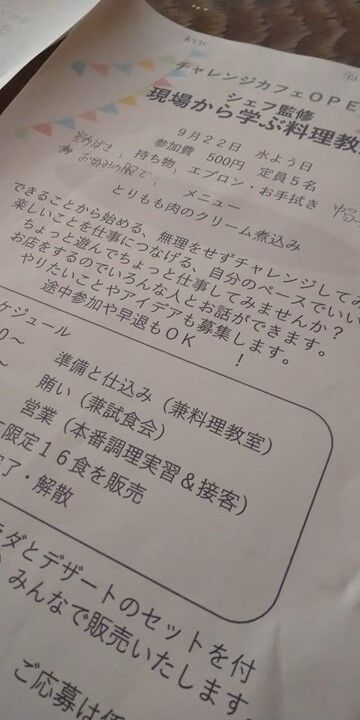 チャレンジカフェOPE
シェフ監修
現場から学ぶ料理教
9月22日 水よう日
参加費 500円 定員5名
持ち物、エプロン・お手拭き
メニュー
とりもも肉のクリーム煮込み
できることから始める、無理をせずチャレンジしてみ
楽しいことを仕事につなげる、自分のペースでいい
ちょっと遊んでちょっと仕事してみませんか?
お店をするのでいろんな人とお話ができます。
やりたいことやアイデアも募集します。
途中参加や早退もOK!
ケジュール
0~
準備と仕込み(兼料理教室)
賄い(兼試食会)
営業(本番調理実習&接客)
限定16食を販売
了・解散
ダとデザートのセットを付
みんなで販売いたします
ご応募は